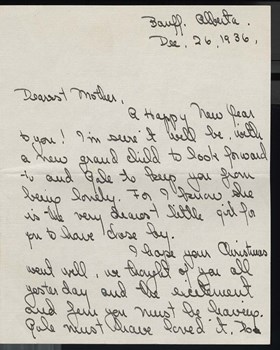 Banff. Alberta.
Dec. 26, 1936.
Dearest Mother,
A Happy New Year
to you! I'm sure it will be, with
a new grand child to look forward
to and Gale to keep you from
being lonely. For I know she
is the very dearest little girl for
you to have close by.
I hope your Christmas
went well, we thought of you all
yesterday and the excitement
and fun you must be having.
Gale must have loved it.